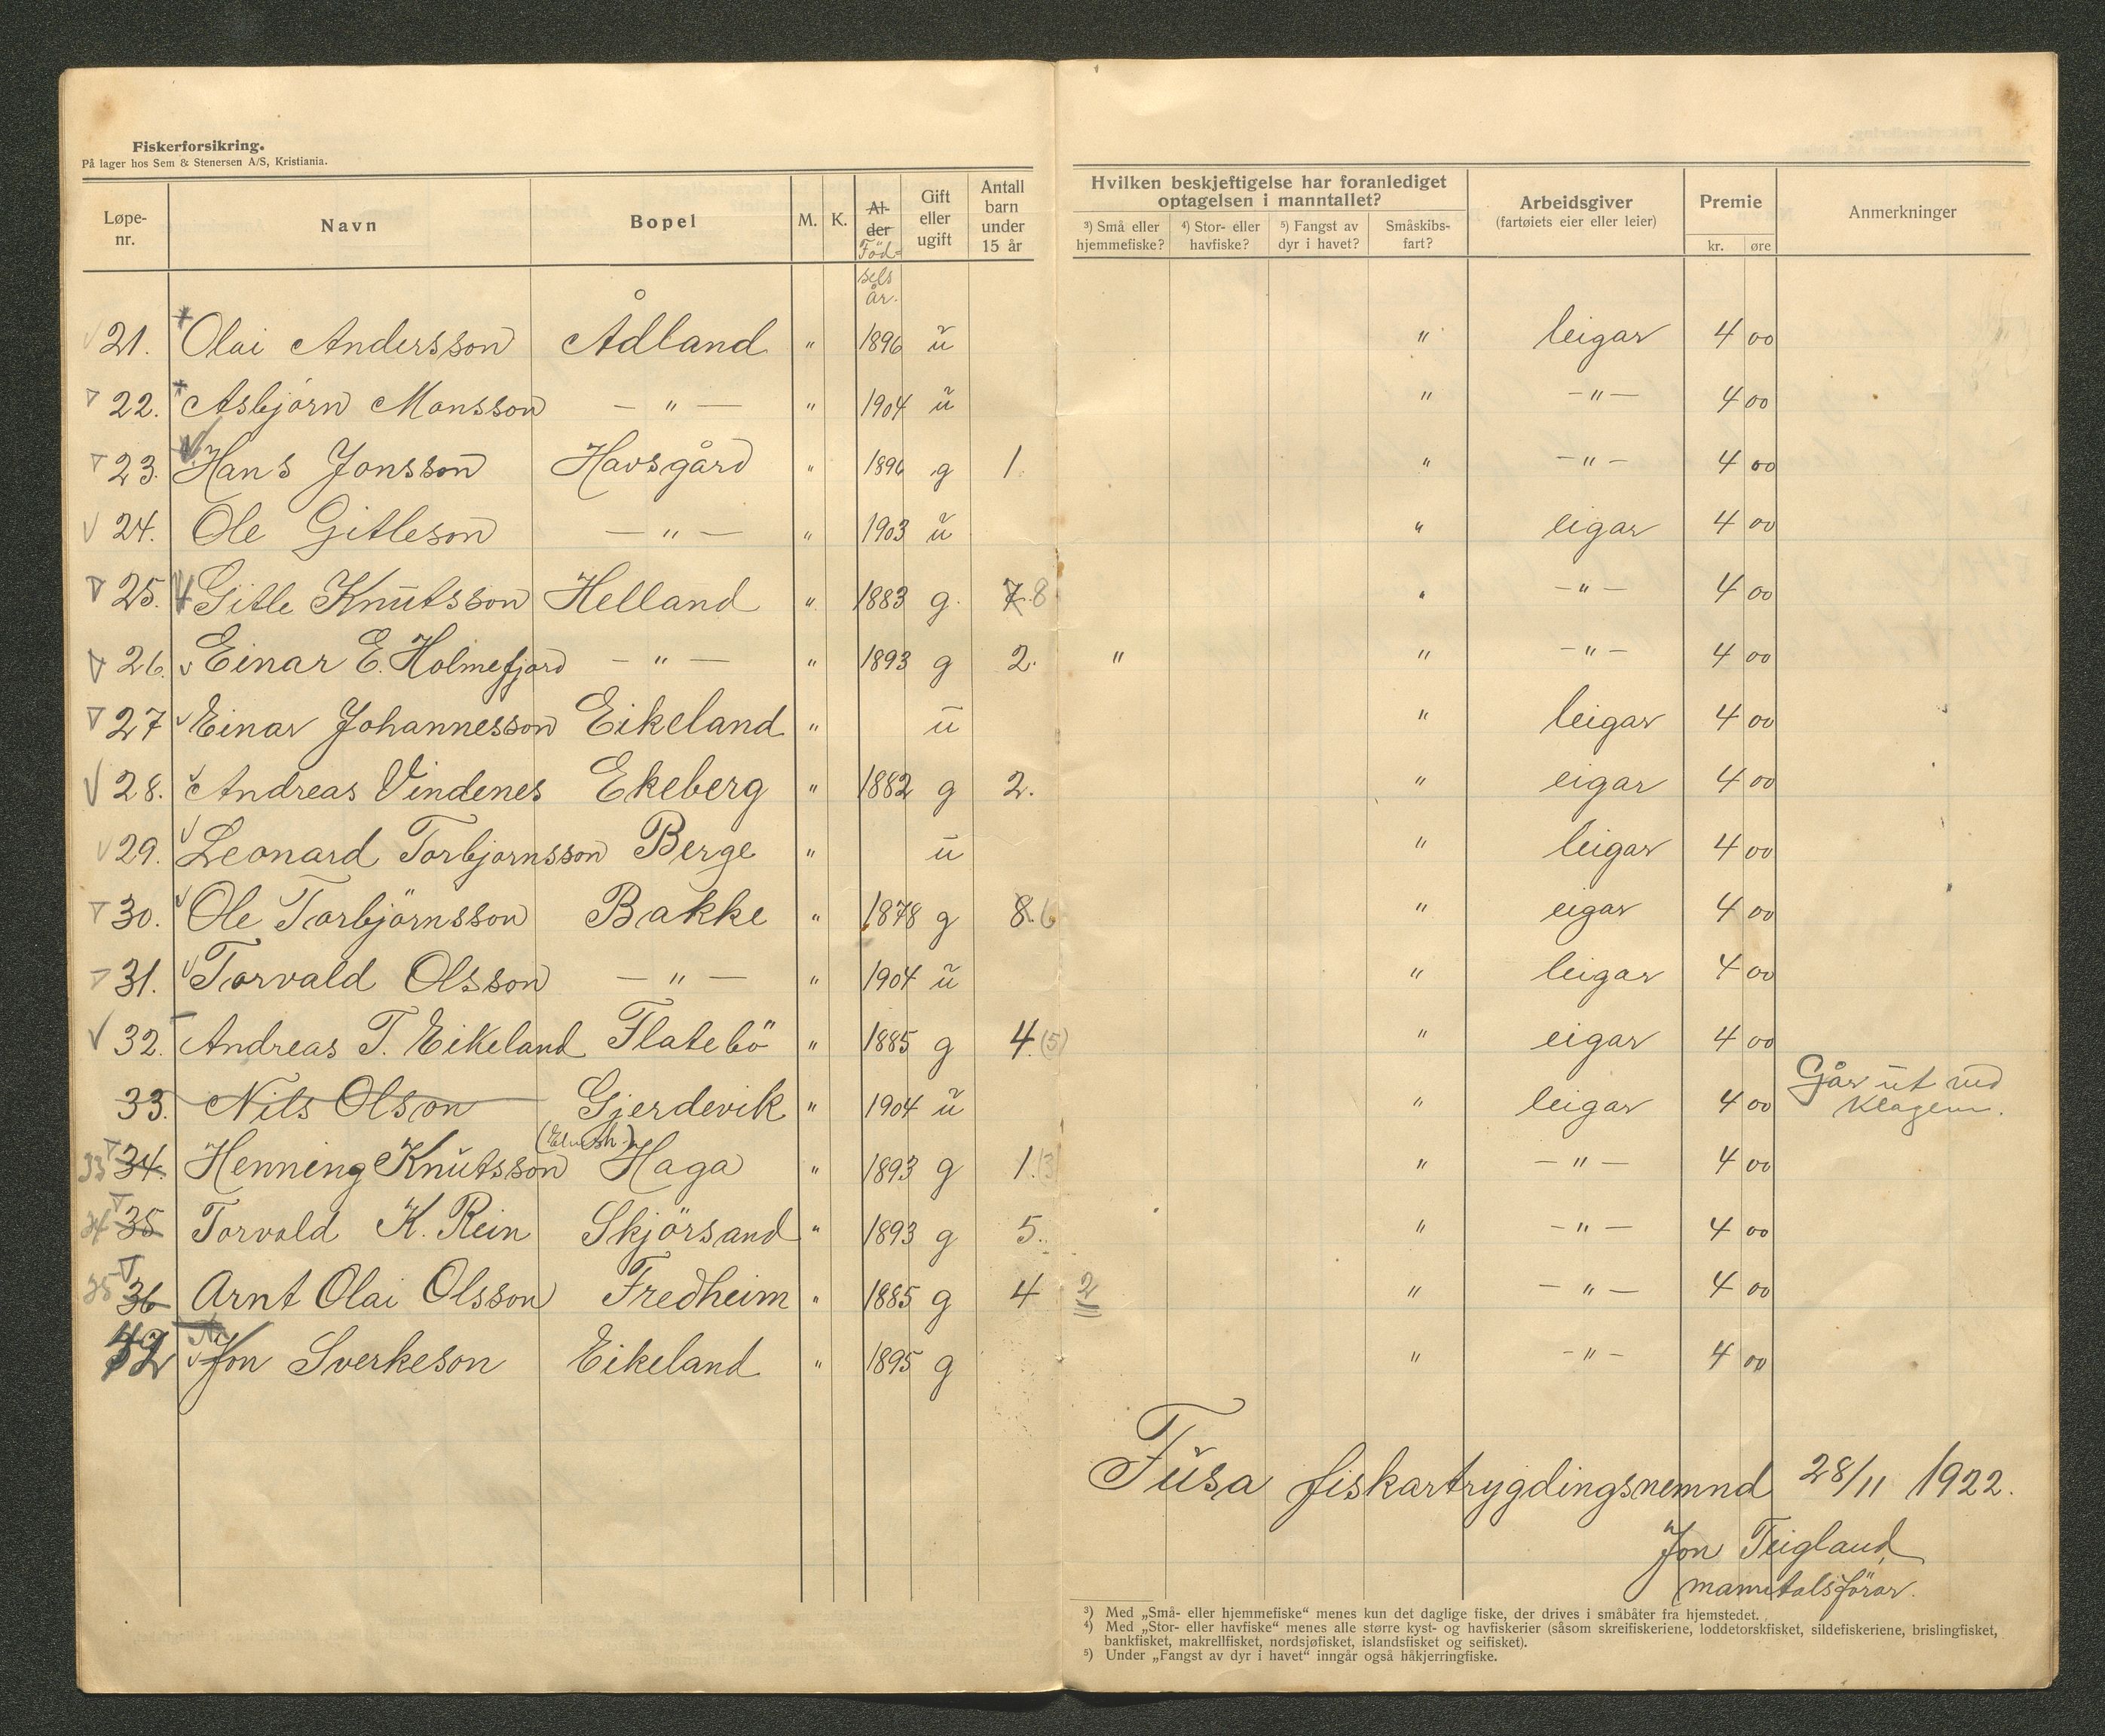 Fiskerforsikring.
På lager hos Sem & Stenersen A/S, Kristiania.
Løpe-nr. Navn Bopel M. K. Al-der Föd-sels år. Gift eller ugift Antall barn under 15 år Hvilken beskjeftigelse har foranlediget optagelsen i manntallet? ³) Små eller hjemmefiske? ⁴) Stor- eller havfiske? ⁵) Fangst av dyr i havet? Småskibs-fart? Arbeidsgiver (fartøiets eier eller leier) Premie kr. øre Anmerkninger
21. Olai Andersson Ådland " 1896 u " leigar 4 00
22. Asbjørn Monsson — " — " 1904 u " — " — 4 00
23. Hans Jonsson Havsgård " 1896 g 1. " — " — 4 00
24. Ole Gitleson — " — " 1903 u " eigar 4 00
25. Gitle Knutsson Helland " 1883 g. 7. 8 " — " — 4 00
26. Einar E. Holmefjord — " — " 1893 g 2. " " — " — 4 00
27 Einar Johannesson Eikeland " u " leigar 4 00
28. Andreas Vindenes Ekeberg " 1882 g 2. " eigar 4 00
29. Leonard Torbjørnsson Berge " u " leigar 4 00
30. Ole Torbjörnsson Bakke " 1878 g 8. 6 " eigar 4 00
31. Torvald Olsson — " — " 1904 u " leigar 4 00
32. Andreas T. Eikeland Flatebö " 1885 g 4. (5) " eigar 4 00
33. Nils Olson Gjerdevik " 1904 u " leigar 4 00 Går ut ved klagem.
33 34. Henning Knutsson Haga " 1893 g 1. (3 " — " — 4 00
34 35 Torvald K. Rein Skjörsand " 1893 g 5. " — " — 4 00
35 36 Arnt Olai Olsson Fredheim " 1885 g 4 2 " — " — 4 00
Jon Sverkeson Eikeland " 1895 g " — " — 4 00
Fusa fiskartrygdingsnemnd 28/11 1922.
Jon Teigland
manntalsförar.
³) Med „Små- eller hjemmefiske“ menes kun det daglige fiske, der drives i småbåter fra hjemstedet.
⁴) Med „Stor- eller havfiske“ menes alle større kyst- og havfiskerier (såsom skreifiskeriene, loddetorskfisket, sildefiskeriene, brislingfisket,
bankfisket, makrellfisket, nordsjøfisket, islandsfisket og seifisket).
⁵) Under „Fangst av dyr i havet“ inngår også håkjerringfiske.